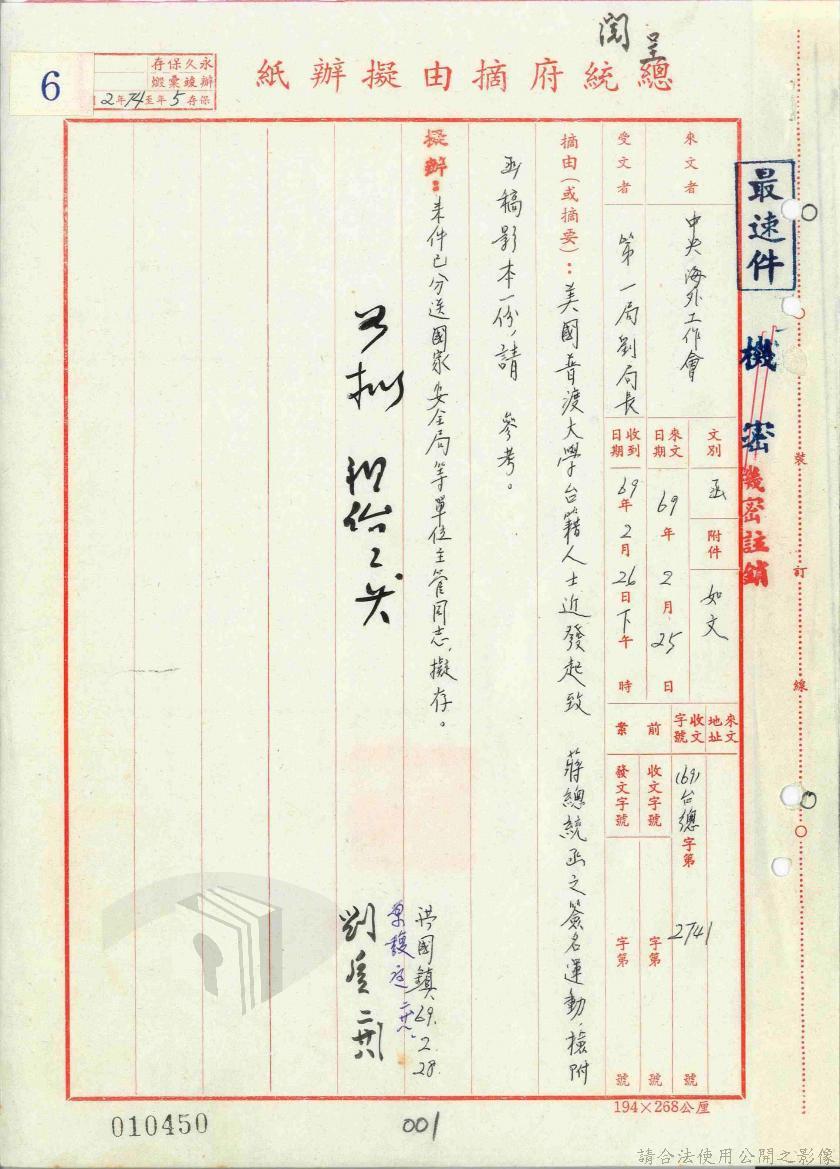 呈閱
總統府摘由擬辦紙
6
永久保存
辦竣彙繳
保存5年至74年2
最速件
機密
機密註銷
裝訂線
來文者
中央海外工作會
文別
函
附件
如文
來文地址
受文者
第一局劉局長
來文日期
69年2月25日
收到日期
69年2月26日下午時
收文字號
(69)台總字第2741號
前案
收文字號
字第號
發文字號
字第號
摘由(或摘要):美國普渡大學台籍人士近發起致 蔣總統函之簽名運動,檢附
函稿影本一份,請 參考。
擬辦:來件已分送國家安全局等單位主管同志,擬存。
洪國鎮69.2.28.
194×268公厘
010450
001
請合法使用公開之影像